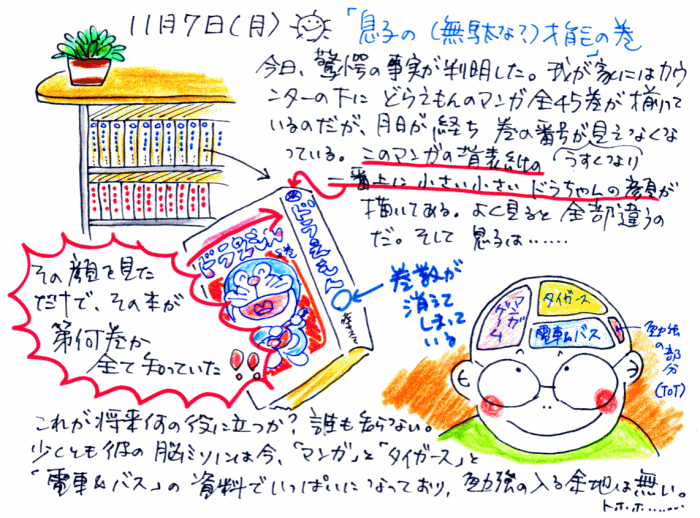 11月7日(月)
「息子の(無駄な?)才能」の巻
今日、驚愕の事実が判明した。我が家にはカウ
ンターの下に どらえもんのマンガ全45巻が揃って
いるのだが、月日が経ち 巻の番号が見えなくな
っている。このマンガの背表紙の
うすくなり
一番上に小さい小さいドラちゃんの顔が
描いてある。よく見ると全部違うの
だ。そして 息子は……
その顔を見た
だけで、その本が
第何巻か
全て知っていた
!!
ドラえもん
ドラえもん
巻数が
消えて
しまって
いる
マンガ
ゲーム
タイガース
電車&バス
勉強
の部分
(ToT)
これが将来何の役に立つか?誰も知らない。
少くとも彼の脳ミソは今、「マンガ」と「タイガース」と
「電車&バス」の資料でいっぱいになっており、勉強の入る余地は無い。
トホホ……